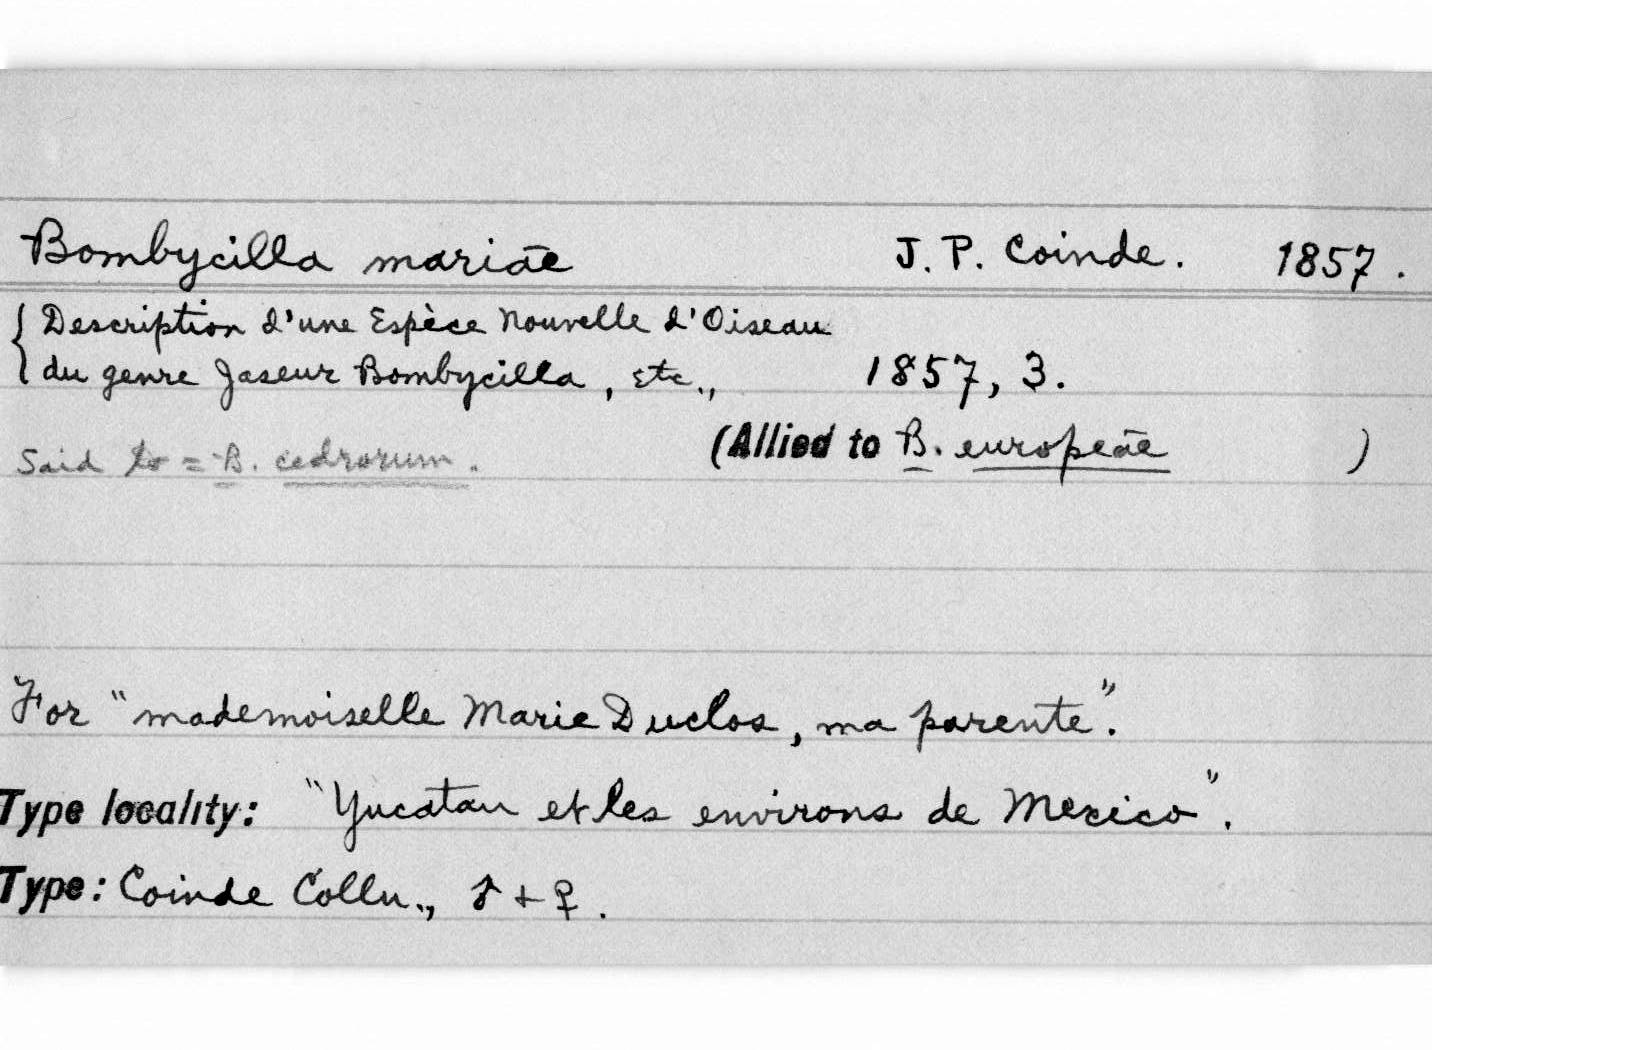 Bombycilla mariāe J. P. Coinde. 1857.
{ Description d'une Espèce Nouvelle d'Oiseau
du genre Jaseur Bombycilla, etc., 1857, 3.
Said to = B. cedrorum. (Allied to B. europeāe )
For "mademoiselle Marie Duclos, ma parente".
Type locality: "Yucatan et les environs de Mexico".
Type: Coinde Colln., ♂ + ♀.